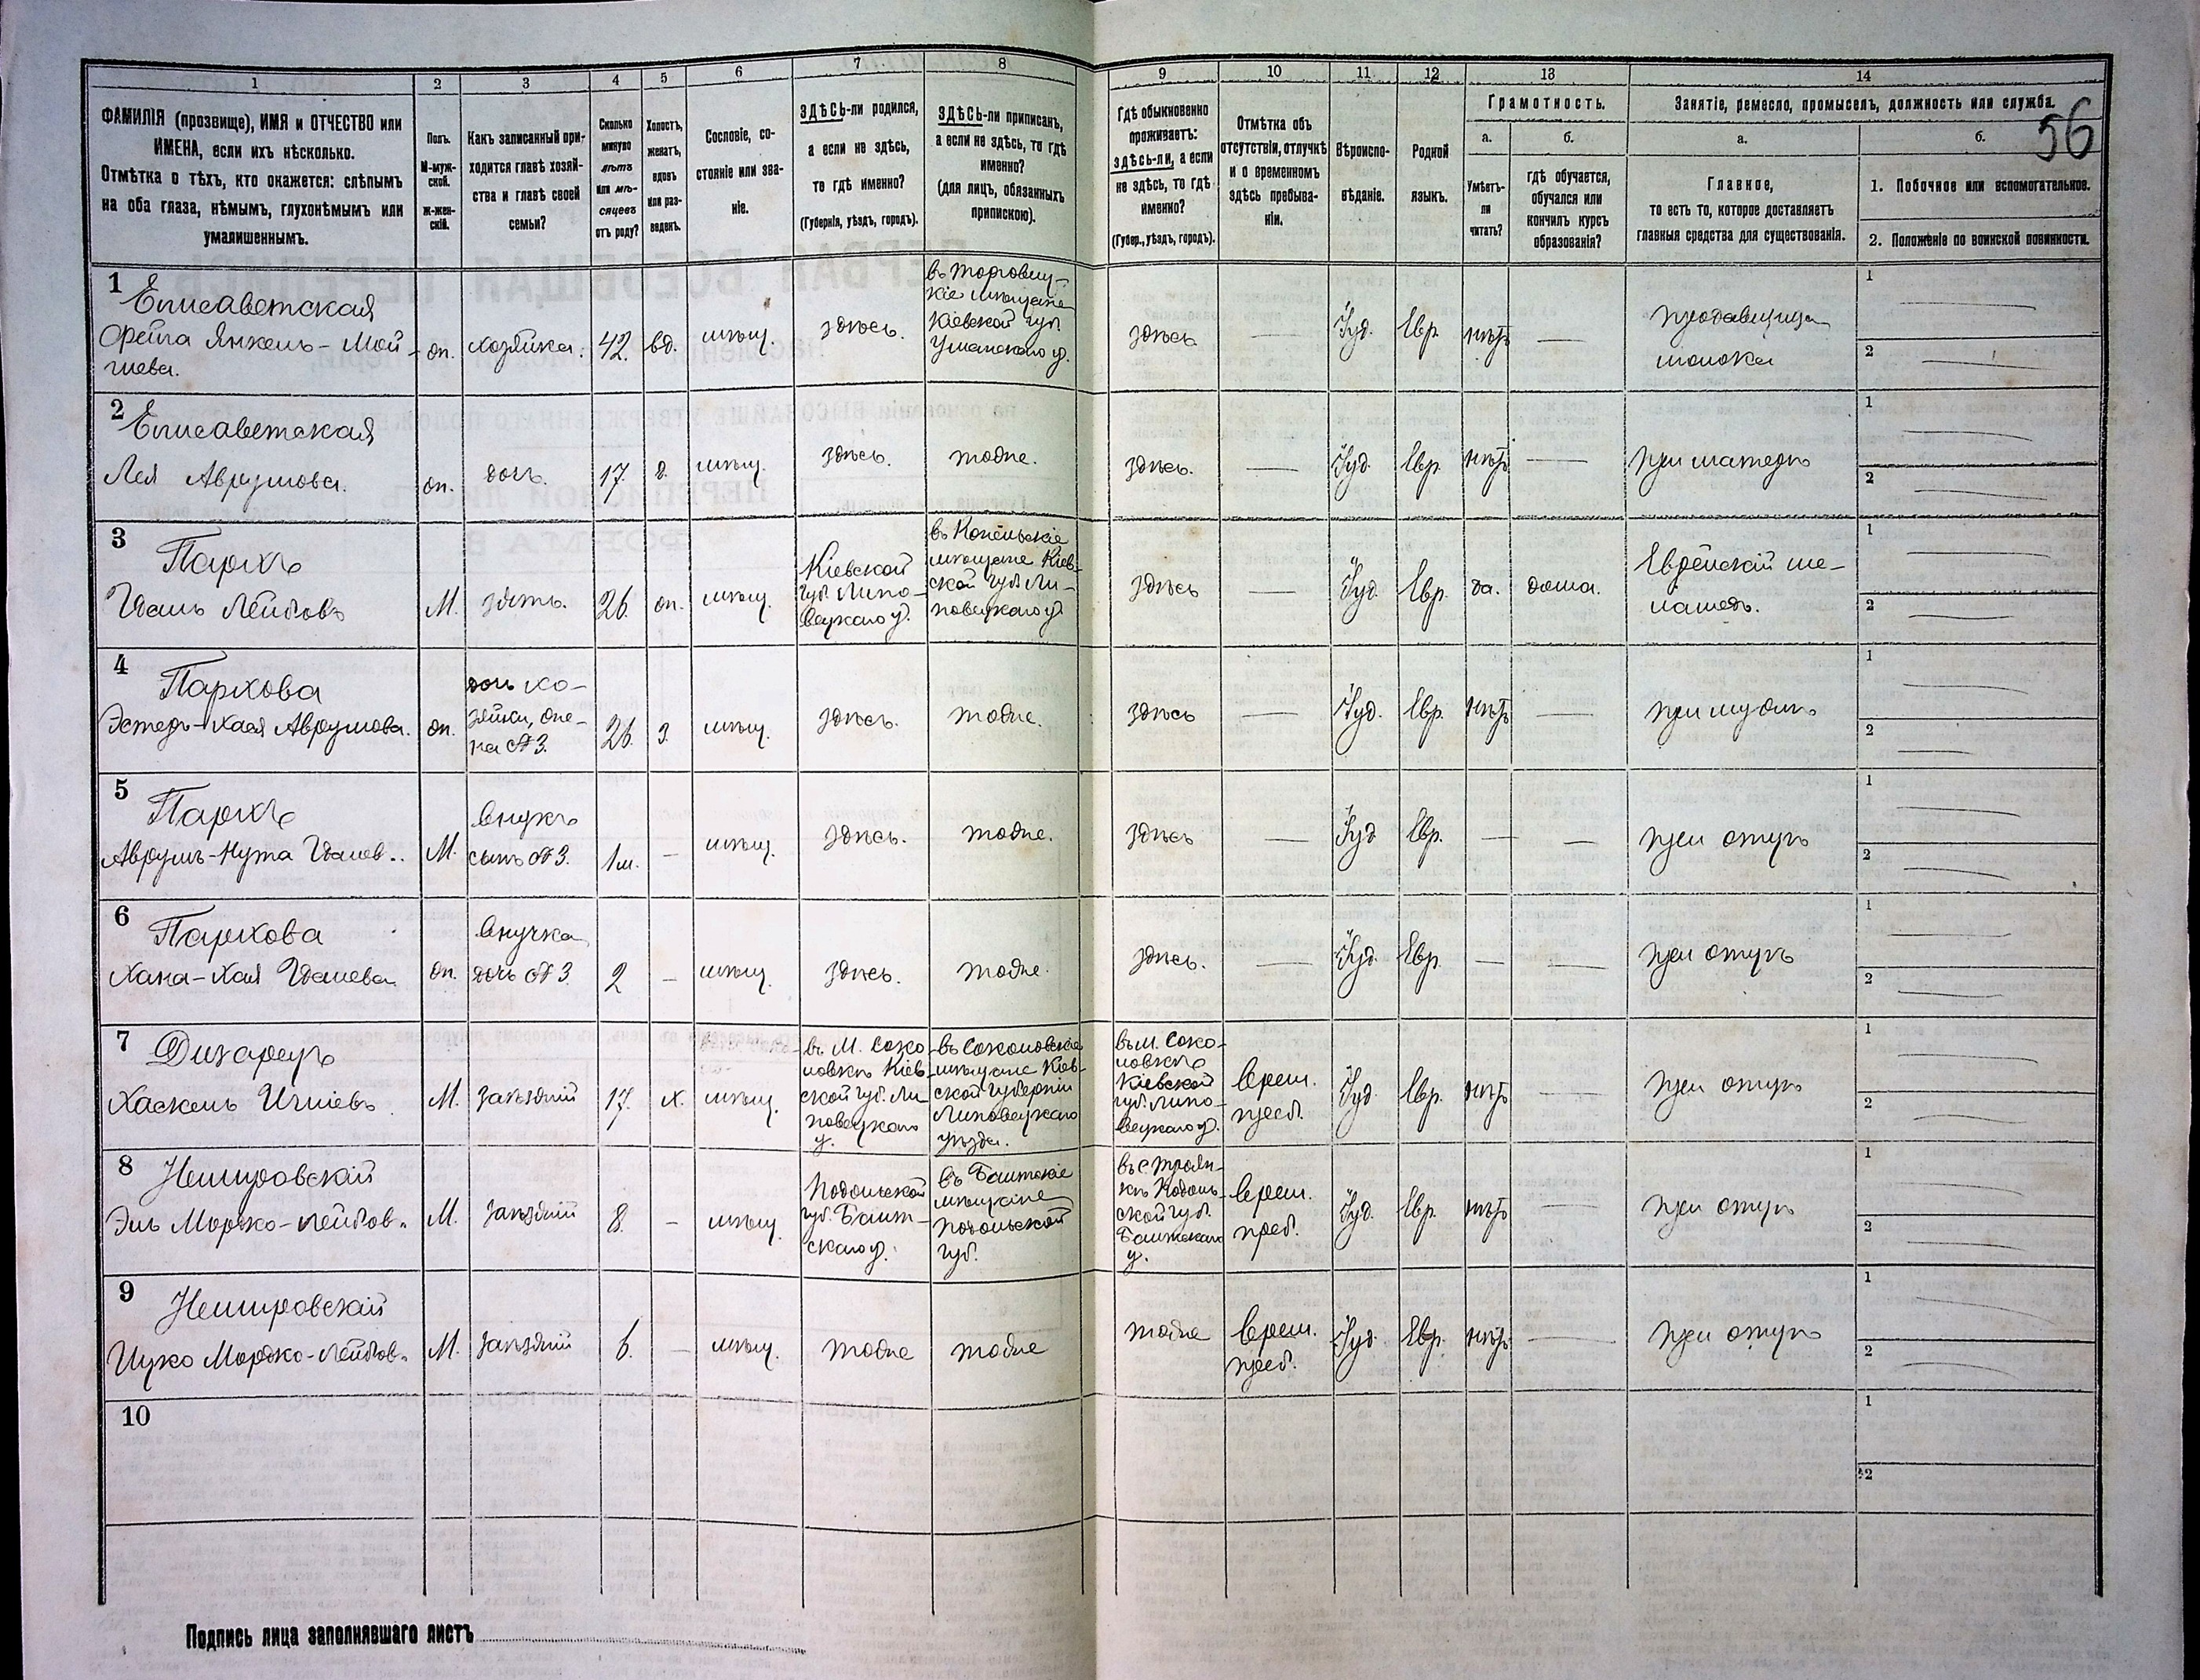 1 2 3 4 5 6 7 8 9 10 11 12 13 14
ФАМИЛІЯ (прозвище), ИМЯ и ОТЧЕСТВО или
ИМЕНА, если ихъ нѣсколько.
Отмѣтка о тѣхъ, кто окажется: слѣпымъ
на оба глаза, нѣмымъ, глухонѣмымъ или
умалишеннымъ.
Полъ.
М-муж-
ской.
ж-жен-
скій.
Какъ записанный при-
ходится главѣ хозяй-
ства и главѣ своей
семьи?
Сколько
минуло
лѣтъ
или мѣ-
сяцевъ
отъ роду?
Холостъ,
женатъ,
вдовъ
или раз-
веденъ.
Сословіе, со-
стояніе или зва-
ніе.
ЗДѢСЬ-ли родился,
а если не здѣсь,
то гдѣ именно?
(Губернія, уѣздъ, городъ).
ЗДѢСЬ-ли приписанъ,
а если не здѣсь, то гдѣ
именно?
(для лицъ, обязанныхъ
припискою).
Гдѣ обыкновенно
проживаетъ:
здѣсь-ли, а если
не здѣсь, то гдѣ
именно?
(Губер., уѣздъ, городъ).
Отмѣтка объ
отсутствіи, отлучкѣ
и о временномъ
здѣсь пребыва-
ніи.
Вѣроиспо-
вѣданіе.
Родной
языкъ.
Грамотность.
а.
Умѣетъ-
ли
читать?
б.
гдѣ обучается,
обучался или
кончилъ курсъ
образованія?
Занятіе, ремесло, промыселъ, должность или служба.
56
а.
Главное,
то есть то, которое доставляетъ
главныя средства для существованія.
б.
1. Побочное или вспомогательное.
2. Положеніе по воинской повинности.
1
Елисаветская
Фейга Янкель-Мой-
шева.
ж.
хозяйка.
42.
вд.
мѣщ.
здѣсь.
въ Торговиц-
кіе мѣщане
Кіевской губ.
Уманскаго у.
здѣсь
Іуд.
Евр.
нѣтъ
—
продавщица
молока
1 —
2 —
2
Елисаветская
Лея Аврумова.
ж.
дочь.
17.
д.
мѣщ.
здѣсь.
тоже.
здѣсь.
—
Іуд.
Евр.
нѣтъ
—
при матери
1 —
2 —
3
Пархъ
Идель Лейбовъ
М.
зять.
26.
ж.
мѣщ.
Кіевской
губ. Липо-
вецкаго у.
въ Конельскіе
мѣщане Кіев-
ской губ. Ли-
повецкаго у.
здѣсь
—
Іуд.
Евр.
да.
дома.
Еврейскій ме-
ламедъ.
1 —
2 —
4
Пархова
Эстеръ-Хая Аврумова.
ж.
дочь хо-
зяйки, же-
на №3.
26.
з.
мѣщ.
здѣсь.
тоже.
здѣсь
—
Іуд.
Евр.
нѣтъ
—
при мужѣ
1 —
2 —
5
Пархъ
Аврумъ-Нута
М.
внукъ
сынъ №3.
1м.
—
мѣщ.
здѣсь.
тоже.
здѣсь
—
Іуд
Евр.
—
—
при отцѣ
1 —
2 —
6
Пархова
Хана-Хая
ж.
внучка
дочь №3
2
—
мѣщ.
здѣсь.
тоже.
здѣсь.
—
Іуд.
Евр.
—
—
при отцѣ
1 —
2 —
7
Хаскель
М.
заѣзжій
17.
х.
мѣщ.
въ М. Соко-
ловкѣ Кіев-
ской губ. Ли-
повецкаго
у.
въ Соколовскіе
мѣщане Кіев-
ской губерніи
Липовецкаго
уѣзда.
въ м. Соко-
ловкѣ
Кіевской
губ. Липо-
вецкаго у.
врем.
преб.
Іуд.
Евр.
нѣтъ
—
при отцѣ
1 —
2 —
8
Немировскій
Эль Мордко-Лейбов.
М.
заѣзжій
8.
—
мѣщ.
Подольской
губ. Балт-
скаго у.
въ Балтскіе
мѣщане
Подольской
губ.
въ с Троян-
кѣ Подоль-
ской губ.
Балтскаго
у.
врем.
преб.
Іуд.
Евр.
нѣтъ
—
при отцѣ
1 —
2 —
9
Немировскій
Ицко Мордко-Лейбов.
М.
заѣзжій
6.
—
мѣщ.
тоже
тоже
тоже
врем.
преб.
Іуд.
Евр.
нѣтъ
—
при отцѣ
1 —
2 —
10
1
2
Подпись лица заполнявшаго листъ